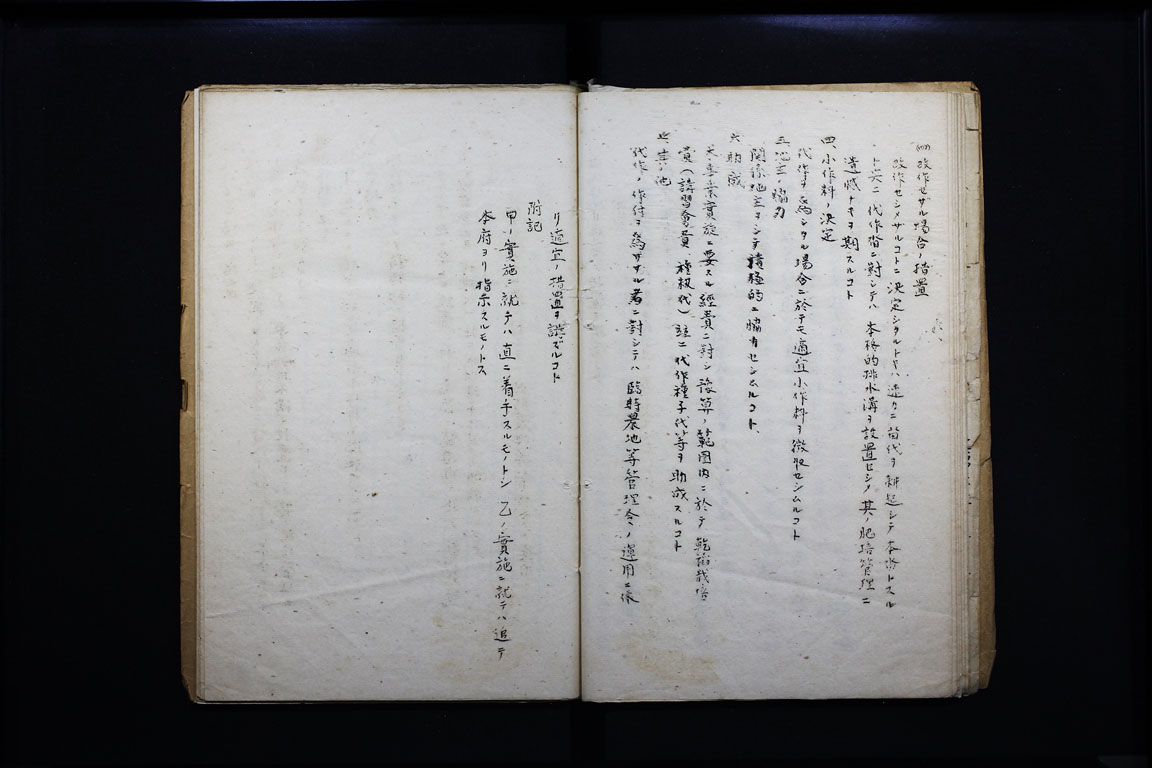 (四)改作セザル場合ノ措置
改作セシメサルコトニ決定シタルトキハ速カニ苗代ヲ耕起シテ本畓トスル
ト共ニ代作畓ニ對シテハ本格的排水溝ヲ設置セシメ其ノ肥培管理ニ
遺憾ナキヲ期スルコト
四、小作料ノ決定
代作ヲ為シタル場合ニ於テモ適宜小作料ヲ徴收セシムルコト
五、地主ノ協力
関係地主ヲシテ積極的ニ協力セシムルコト、
六、助成
本事業實施ニ要スル經費ニ對シ豫算ノ範囲内ニ於テ乾稻栽培
費(講習會費、種籾代)竝ニ代作種子代等ヲ助成スルコト
七、其ノ他
代作ノ作付ヲ為サザル者ニ對シテハ臨時農地等管理令ノ運用ニ依
リ適宜ノ措置ヲ講ズルコト
附記
甲ノ實施ニ就テハ直ニ着手スルモノトシ乙ノ實施ニ就テハ追テ
本府ヨリ指示スルモノトス